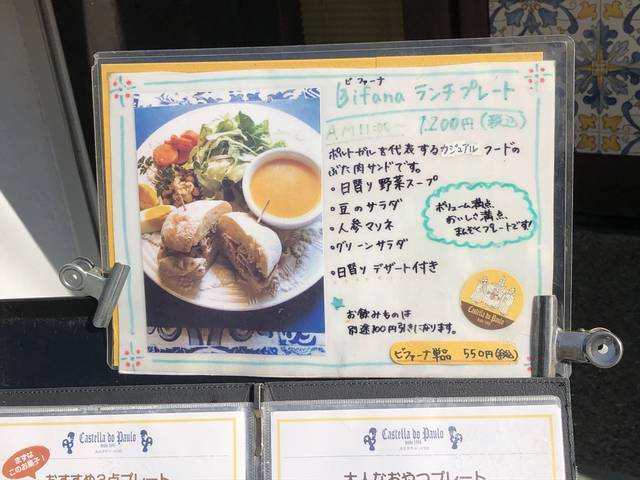 ビファーナ
Bifana ランチプレート
AM11:00 1,200円(税込)
ポルトガルを代表するカジュアルフードの
ぶた肉サンドです。
・日替り 野菜スープ
・豆のサラダ
・人参マリネ
・グリーンサラダ
・日替り デザート付き
ボリューム満点
おいしさ満点
まんぞくプレートです!
お飲みものは
別途100円引きになります。
Castella do Paulo
ビファーナ単品 550円(税込)
Castella do Paulo
まずは
このお菓子!
おすすめ3点プレート
Castella do Paulo
大人なおやつプレート